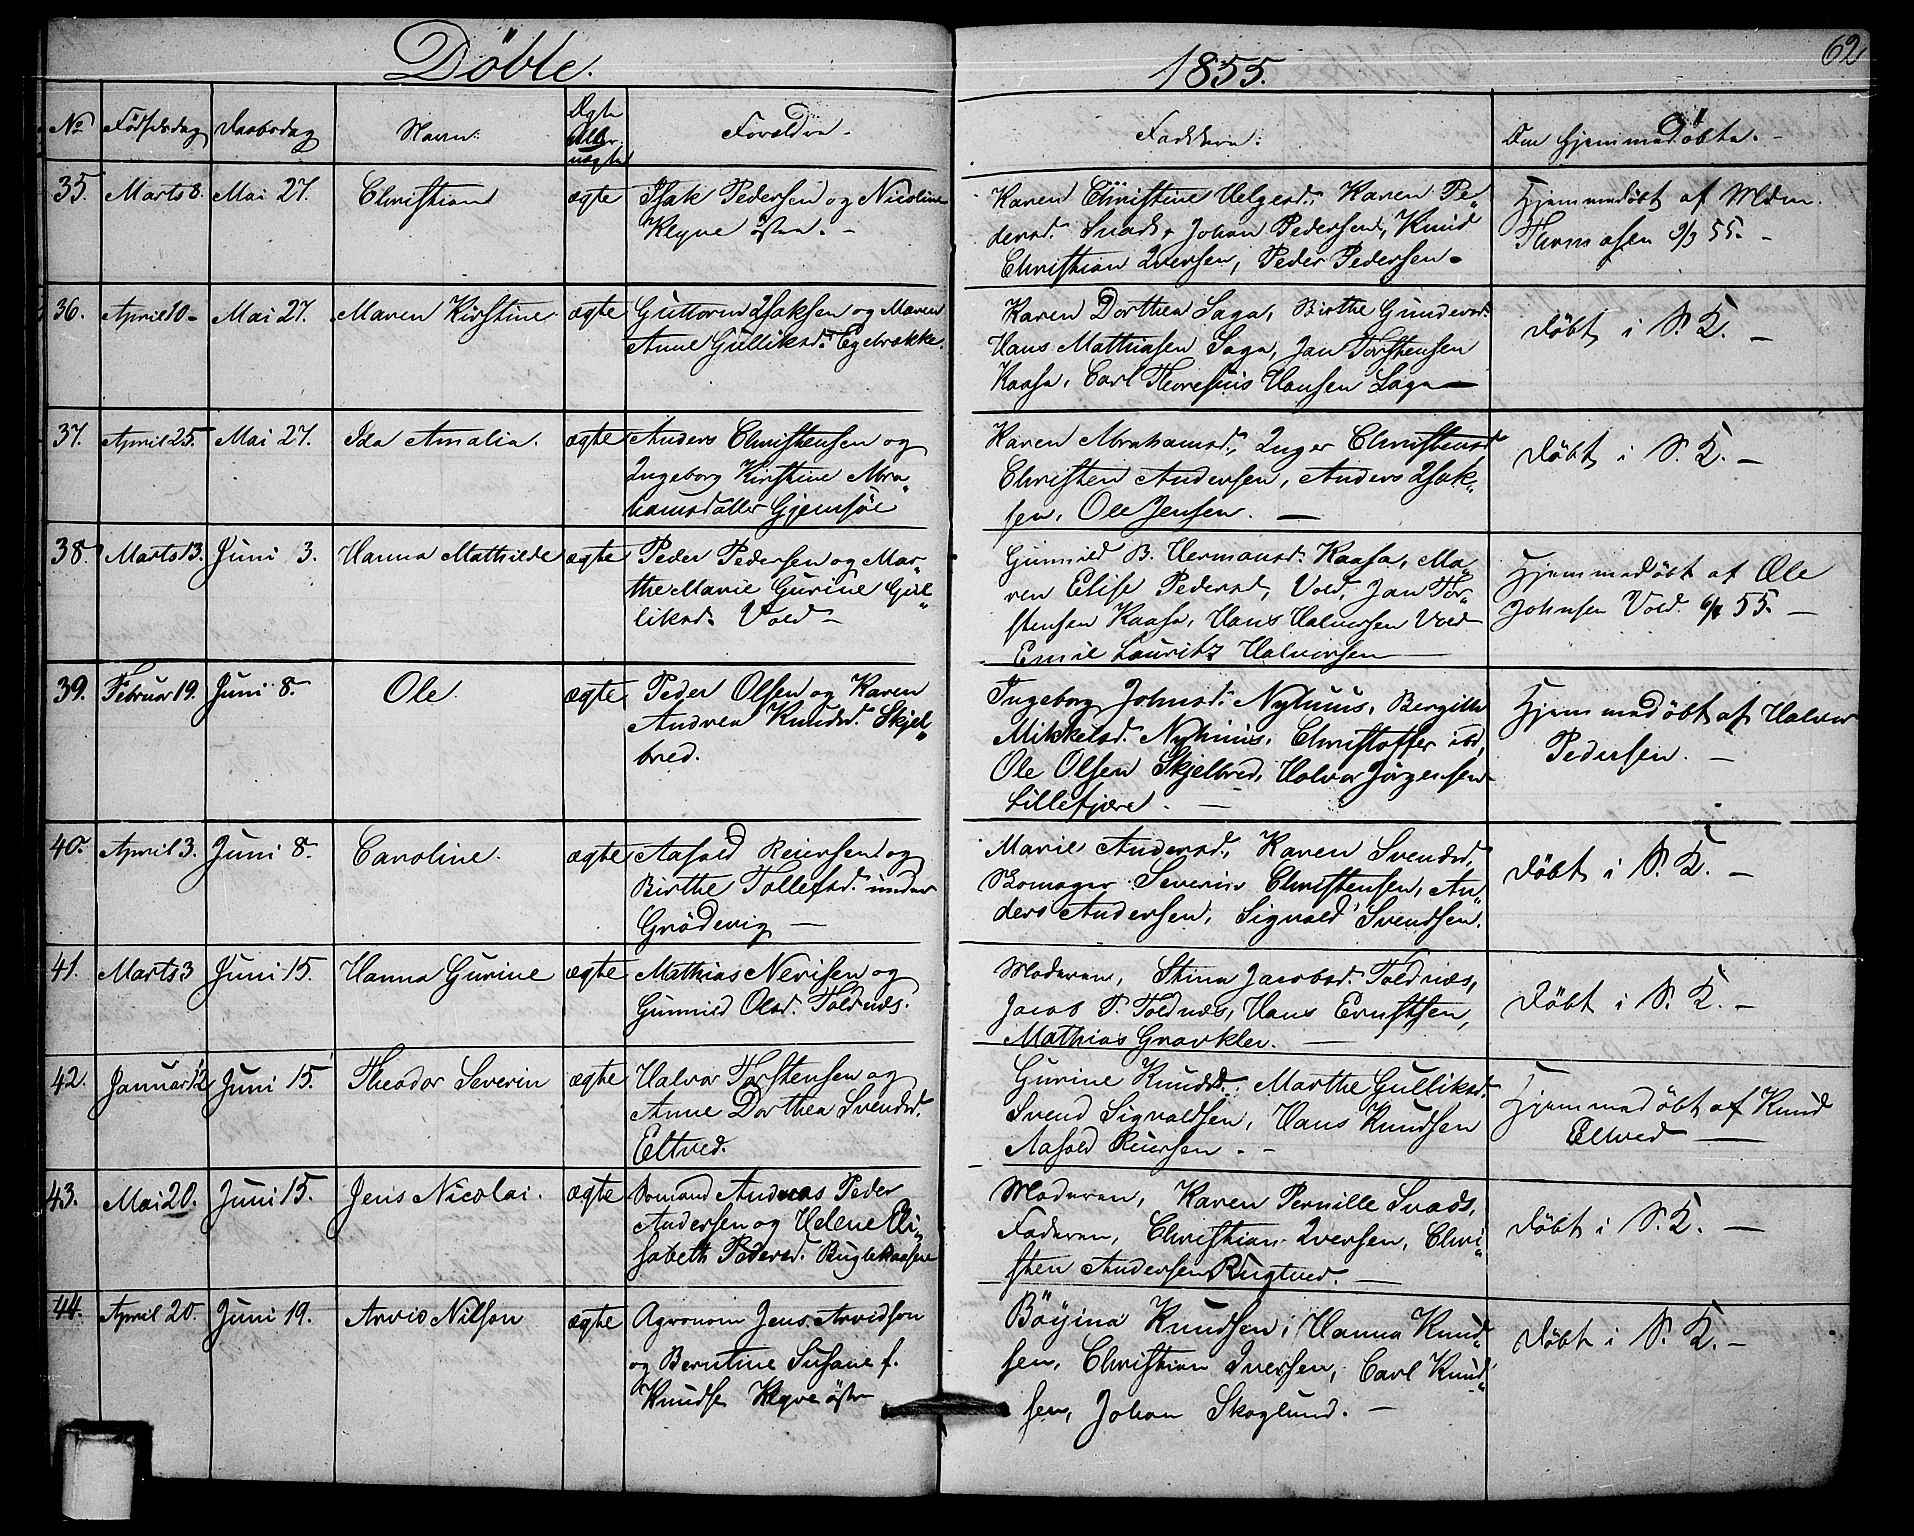 Döbte.
1855.
62
No Födselsdag Daabsdag Navn. Ægte eller uægte Forældre. Faddere. Den Hjemmedöbte.
35. Marts 8. Mai 27. Christiand ægte Isak Pedersen og Nicoline
Klyve östre. -
Karen Christine Helgesd., Karen Pe„
dersd. Snads, Johan Pedersen, Knud
Christian Iversen, Peder Pedersen.
Hjemmedöbt af Mdm.
Thomasen 9/3 55. -
36. April 10 - Mai 27. Maren Kirstine ægte Guttorm Isaksen og Maren
Anne Gulliksd. Egebrække.
Karen Dorthea Saga, Birthe Gundersd.
Hans Mathiasen Saga, Jan Torstensen
Kaasa, Carl Thoresius Hansen Saga -
Döbt i S. K. -
37. April 25. Mai 27. Ida Amalia. ægte Anders Christensen og
Ingeborg Kirstine Abra„
hamsdatter Gjemsöe
Karen Abrahamsd., Inger Christensd
Christen Andersen, Anders Isak„
sen, Ole Jensen. -
Döbt i S. K. -
38. Marts 13. Juni 3. Hanna Mathilde ægte Peder Pedersen og Mar„
the Marie Gurine Gul„
liksd. Vold -
Gunnild B. Hermansd. Kaasa, Ma„
ren Elise Pedersd. Vold, Jan Tor„
stensen Kaasa, Hans Halvorsen Vold
Emil Lauritz Halvorsen -
Hjemmedöbt af Ole
Johnsen Vold. 55. -
39. Februar 19. Juni 8. Ole. ægte Peder Olsen og Karen
Andrea Knudsd. Skjel„
bred.
Ingeborg Johnsd. Nyhuus, Bergitte
Mikkelsd. Nyhuus, Christoffer ibd,
Ole Olsen Skjelbred, Halvor Jörgensen
Lillefjære. -
Hjemmedöbt af Halvor
Pedersen. -
40. April 3. Juni 8. Caroline. ægte Aasold Reiersen og
Birthe Tollefsd. under
Grödevig -
Marie Andersd., Karen Svendsd,
Skomager Severin Christensen, An„
ders Andersen, Sigvald Svendsen.
Döbt i S. K. -
41. Marts 3 Juni 15. Hanna Gurine ægte Mathias Nerisen og
Gunnild Olsd. Toldnæs.
Moderen, Stina Jacobsd. Toldnæs,
Jacob P. Toldnæs, Hans Ernstsen,
Mathias Gravkler. -
Döbt i S. K. -
42. Januar 12 Juni 15. Theodor Severin ægte Halvor Torstensen og
Anne Dorthea Svendsd.
Eltved.
Gurine Knudsd., Marthe Gulliksd.
Svend Sigvaldsen, Hans Knudsen
Aasold Reiersen. -
Hjemmedöbt af Knud
Eltved -
43. Mai 20. Juni 15. Jens Nicolai. ægte Somand Andreas Peder
Andersen og Helene Eli„
sabeth Pedersd. Rugtvedkaasene
Moderen, Karen Pernille Snads,
Faderen, Christian Iversen, Chri„
sten Andersen Rugtved. -
Döbt i S. K. -
44. April 20. Juni 19. Arvid Nilson ægte Agronom Jens Arvidson
og Berntine Susane f.
Knudse Klyve östre
Böyina Knudsen, Hanna Knud„
sen, Christian Iversen, Carl Knud„
sen, Johan Skoglund. -
Döbt i S. K. -